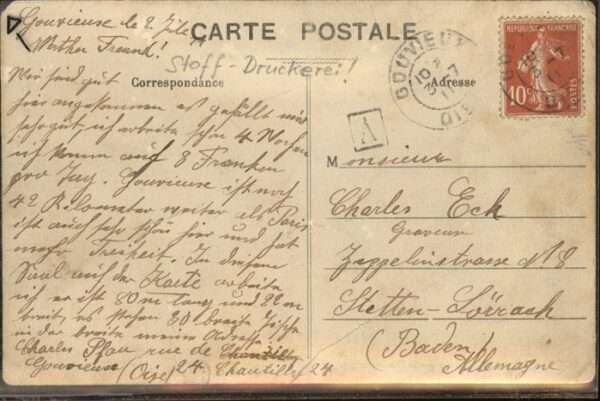 Gouvieux le 2 Juli
CARTE POSTALE
Werther Freund!
Stoff-Druckerei!
Correspondance
Adresse
Wir sind gut
hier angekommen es gefällt mir
sehr gut, ich arbeite schon 4 Wochen
ich komm auf 8 Franken
pro Tag. Gouvieux ist noch
42 Kilometer weiter als Paris
ist auch sehr schön hier und hat
mehr Freiheit. In diesem
Saal auf der Karte arbeite
ich er ist 80 m lang und 22 m
breit es stehen 30 breite Tische
in der breite meine Adresse
Charles Pfau rue de Chantilly
Gouvieux (Oise) 24 Chantilly 24
GOUVIEUX
OISE
A
REPUBLIQUE FRANÇAISE
10c
POSTES
Monsieur
Charles Eck
Graveur
Zeppelinstrasse No 8
Stetten-Lörrach
(Baden)
Allemagne